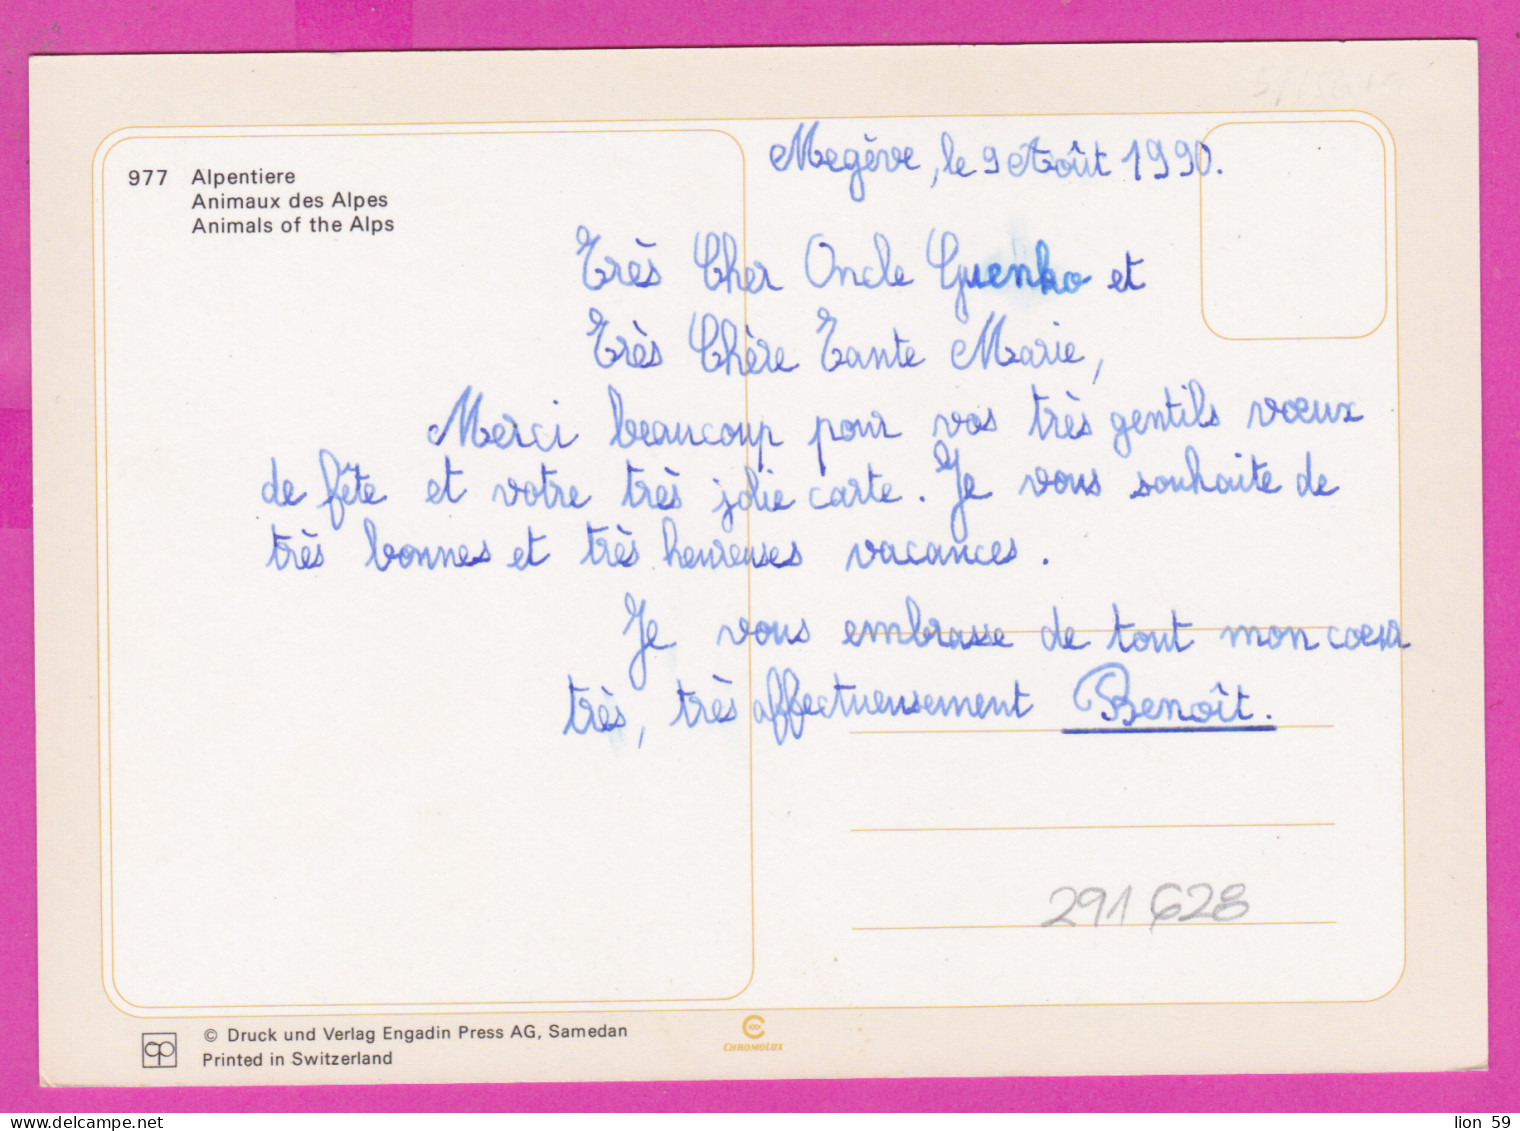 977 Alpentiere
Animaux des Alpes
Animals of the Alps
Megève, le 9 Août 1990.
Très Cher Oncle Guenko et
Très Chère Tante Marie,
Merci beaucoup pour vos très gentils vœux
de fête et votre très jolie carte. Je vous souhaite de
très bonnes et très heureuses vacances.
Je vous embrasse de tout mon coeur
très, très affectueusement Benoît.
291628
© Druck und Verlag Engadin Press AG, Samedan
Printed in Switzerland
CHROMOLUX
lion 59